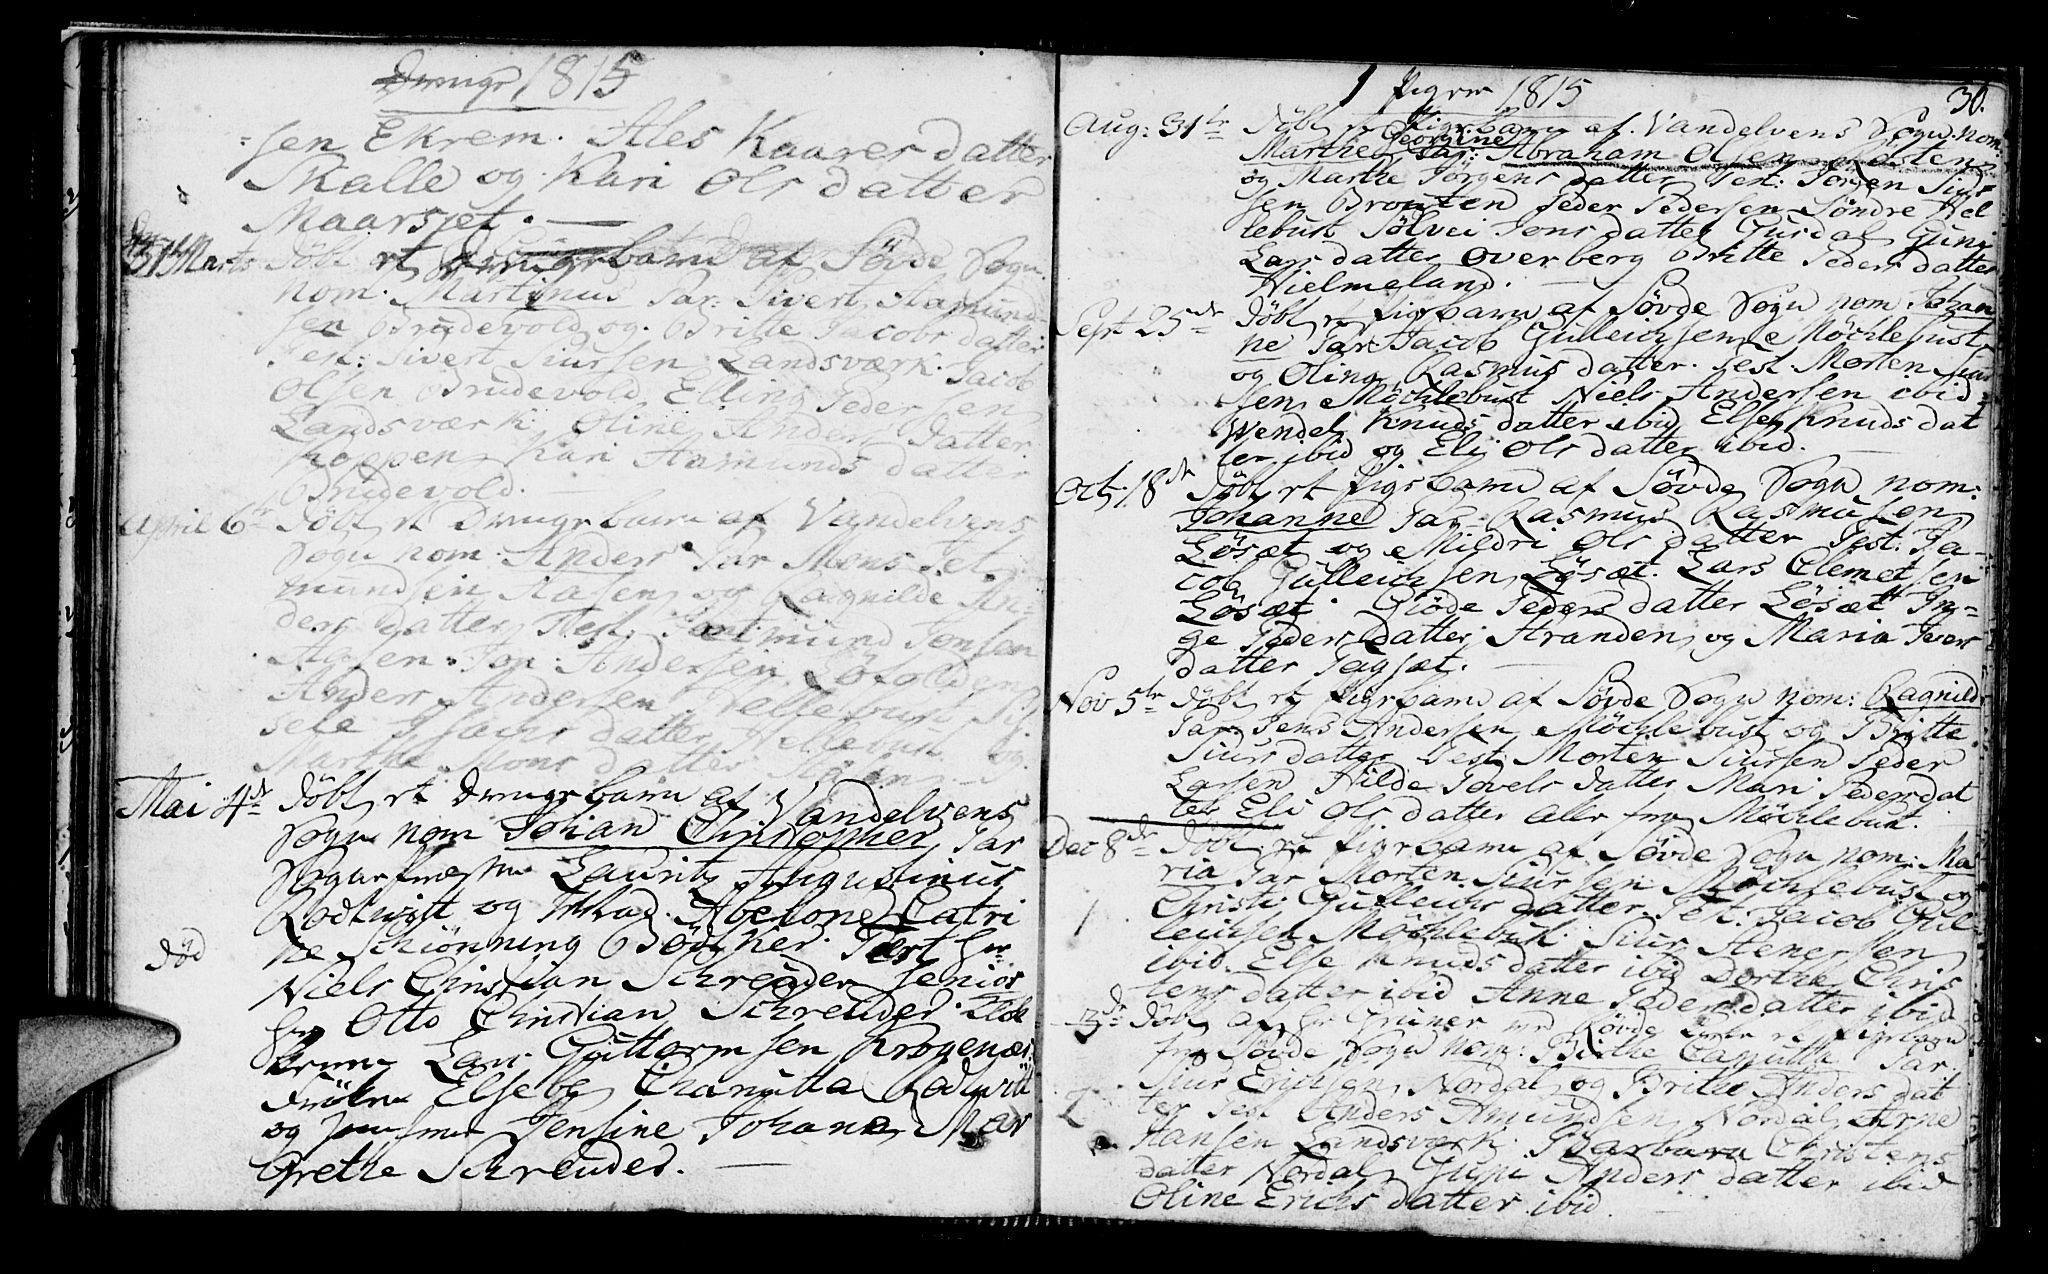 Drenge 1815
sen Ekrem. Ales Kaares datter
Skalle og Kari Ols datter
Maarsæt.
31te Marts Döbt et Drengebarn af Søvde Sogn
nom. Martinus Par: Sivert Aamund
sen Brudevold og Britte Jacobs datter
Test: Sivert Siursen Landsværk. Jacob
Olsen Brudevold, Elling Peder sen
Landsværk. Oline Anders datter
Koppen Kari Aamunds datter
Brudevold.
April 6te Döbt et Drengebarn af Vandelvens
Sogn nom: Anders Par Mons Jet
mundsen Aasen og Ragnilde An
ders datter Test. Jetmund Jonsen
Aasen. Jon Andersen
Anders Andersen Hellebust
sele datter Hellebust og
Marthe Mons datter Aasen.
Mai 4de Döbt et Drengebarn af Vandelvens
Sogn nom Johan Christopher Par
Sognepræsten Laurits Augustinus
Rodtwitt og Abelone Catri
ne Schiønning Bödcher. Test Hr
död
Niels Christian Schreuder Senior
Hr Otto Christian Schreuder.
Lars Guttormsen Krogenæs
Elsebe Chanutta Rodtwitt
og Jensine Johana Mar
Grethe Schreuder.
Piger 1815
30.
Aug: 31te Döbt et Pigebarn af Vandelvens Sogn nom:
Georgine
Marthe Par: Abraham Olsen
og Marthe Jörgens datter Test: Jörgen Siur
sen Brouten Peder Pedersen Söndre Hel
lebust Sölvei Jons datter Gusdal Guni
Lars datter Overberg Britte Peders datter
Hielmeland.
Sept 25de Döbt et Pigebarn af Søvde Sogn nom Johan
ne Par Jacob Gulleichsen Möchlebust
og Oline Rasmus datter. Test. Morten Siur
sen Möchlebust Niels Andersen ibid
Wendel Knuds datter ibid Else Knuds dat
ter ibid og Eli Ols datter ibid.
Oct. 18de Döbt et Pigebarn af Søvde Sogn nom:
Johanne Par Rasmus Rasmusen
Løsæt og Mildri Ols datter Test: Ja-
cob Gulleichsen Løsæt. Lars Clemetsen
Løsæt. Giöde Peders datter Løsæt In-
ge Peders datter Stranden og Maria Iver
datter Sagsæt.
Nov 5te Döbt et Pigebarn af Søvde Sogn nom: Ragnilde
Par Jens Andersen Möchlebust og Britte
Siurs datter Test: Morten Siursen Peder
Larsen Hilde Povels datter Mari Peders dat
ter Eli Ols datter alle fra Möchlebust.
Dec 8de Döbt et Pigebarn af Søvde Sogn nom: Ma
ria Par Morten Siursen Möchlebust og
Christi Gulleichs datter. Test: Jacob Gul
leichsen Möchlebust. Siur Stenersen
ibid. Else Knuds datter ibid Dorthe Chris
tens datter ibid Anne Peders datter ibid
3de Döbt af Hr Gruner ved Røvde et Pigebarn
fra Søvde Sogn nom: Birthe Canutta Par
Siur Erichsen Nordal og Britte Anders dat
ter Test Anders Amundsen Nordal Arne
Hansen Landsværk. Barbara Christens
datter Nordal Guni Anders datter ibid
Oline Erichs datter ibid.